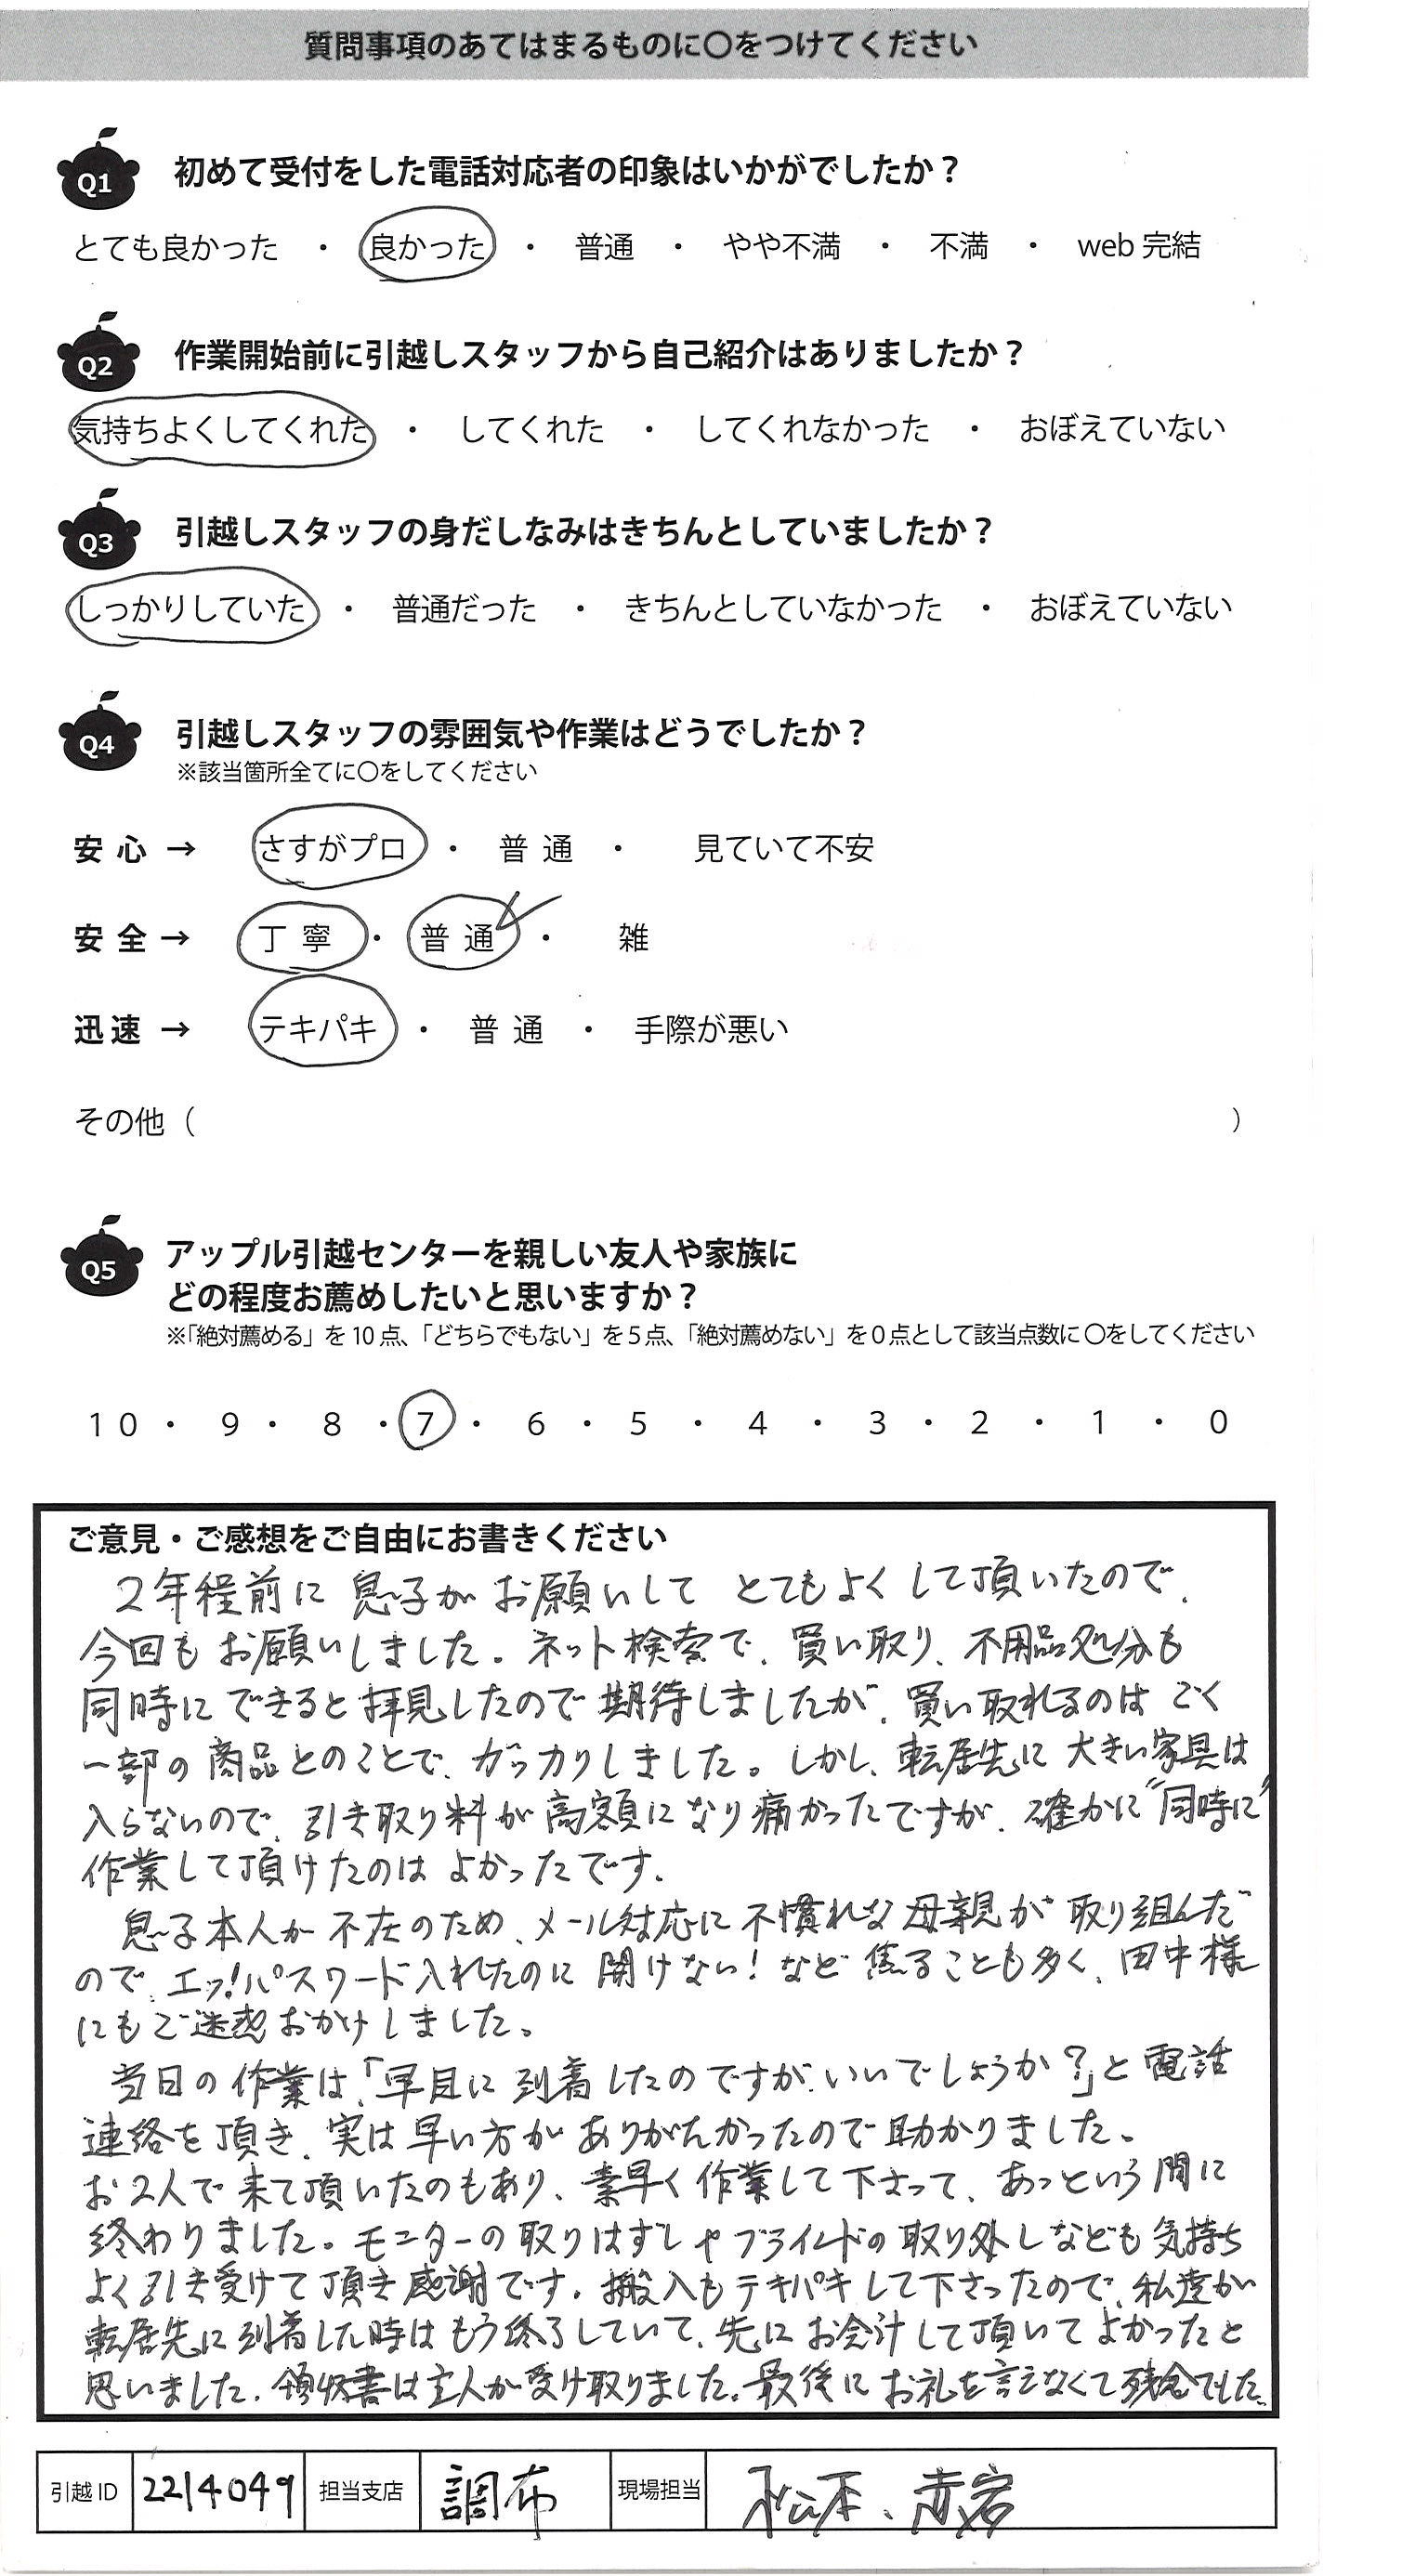 質問事項のあてはまるものに〇をつけてください
Q1 初めて受付をした電話対応者の印象はいかがでしたか？
とても良かった ・ 良かった ・ 普通 ・ やや不満 ・ 不満 ・ web 完結
Q2 作業開始前に引越しスタッフから自己紹介はありましたか？
気持ちよくしてくれた ・ してくれた ・ してくれなかった ・ おぼえていない
Q3 引越しスタッフの身だしなみはきちんとしていましたか？
しっかりしていた ・ 普通だった ・ きちんとしていなかった ・ おぼえていない
Q4 引越しスタッフの雰囲気や作業はどうでしたか？
※該当箇所全てに〇をしてください
安心 → さすがプロ ・ 普通 ・ 見ていて不安
安全 → 丁寧 ・ 普通 ・ 雑
迅速 → テキパキ ・ 普通 ・ 手際が悪い
その他（ ）
Q5 アップル引越センターを親しい友人や家族に
どの程度お薦めしたいと思いますか？
※「絶対薦める」を10点、「どちらでもない」を5点、「絶対薦めない」を0点として該当点数に〇をしてください
10 ・ 9 ・ 8 ・ 7 ・ 6 ・ 5 ・ 4 ・ 3 ・ 2 ・ 1 ・ 0
ご意見・ご感想をご自由にお書きください
2年程前に 息子がお願いして とてもよくして頂いたので、
今回もお願いしました。ネット検索で、買い取り、不用品処分も
同時にできると拝見したので期待しましたが、買い取れるのはごく
一部の商品とのことで、ガッカリしました。しかし、転居先に大きい家具は
入らないので、引き取り料が高額になり痛かったですが、確かに"同時に"
作業して頂けたのはよかったです。
息子本人が不在のため、メール対応に不慣れな母親が取り組んだ
ので、エッ!パスワード入れたのに開けない!など焦ることも多く、田中様
にもご迷惑おかけしました。
当日の作業は、「早目に到着したのですが、いいでしょうか？」と電話
連絡を頂き、実は早い方がありがたかったので助かりました。
お2人で来て頂いたのもあり、素早く作業して下さって、あっという間に
終わりました。モニターの取りはずしやブラインドの取り外しなども気持ち
よく引き受けて頂き感謝です。搬入もテキパキして下さったので、私達が
転居先に到着した時はもう終了していて、先にお会計して頂いてよかったと
思いました。領収書は主人が受け取りました。最後にお礼を言えなくて残念でした。
引越ID 2214049 担当支店 調布 現場担当 松本、赤岩